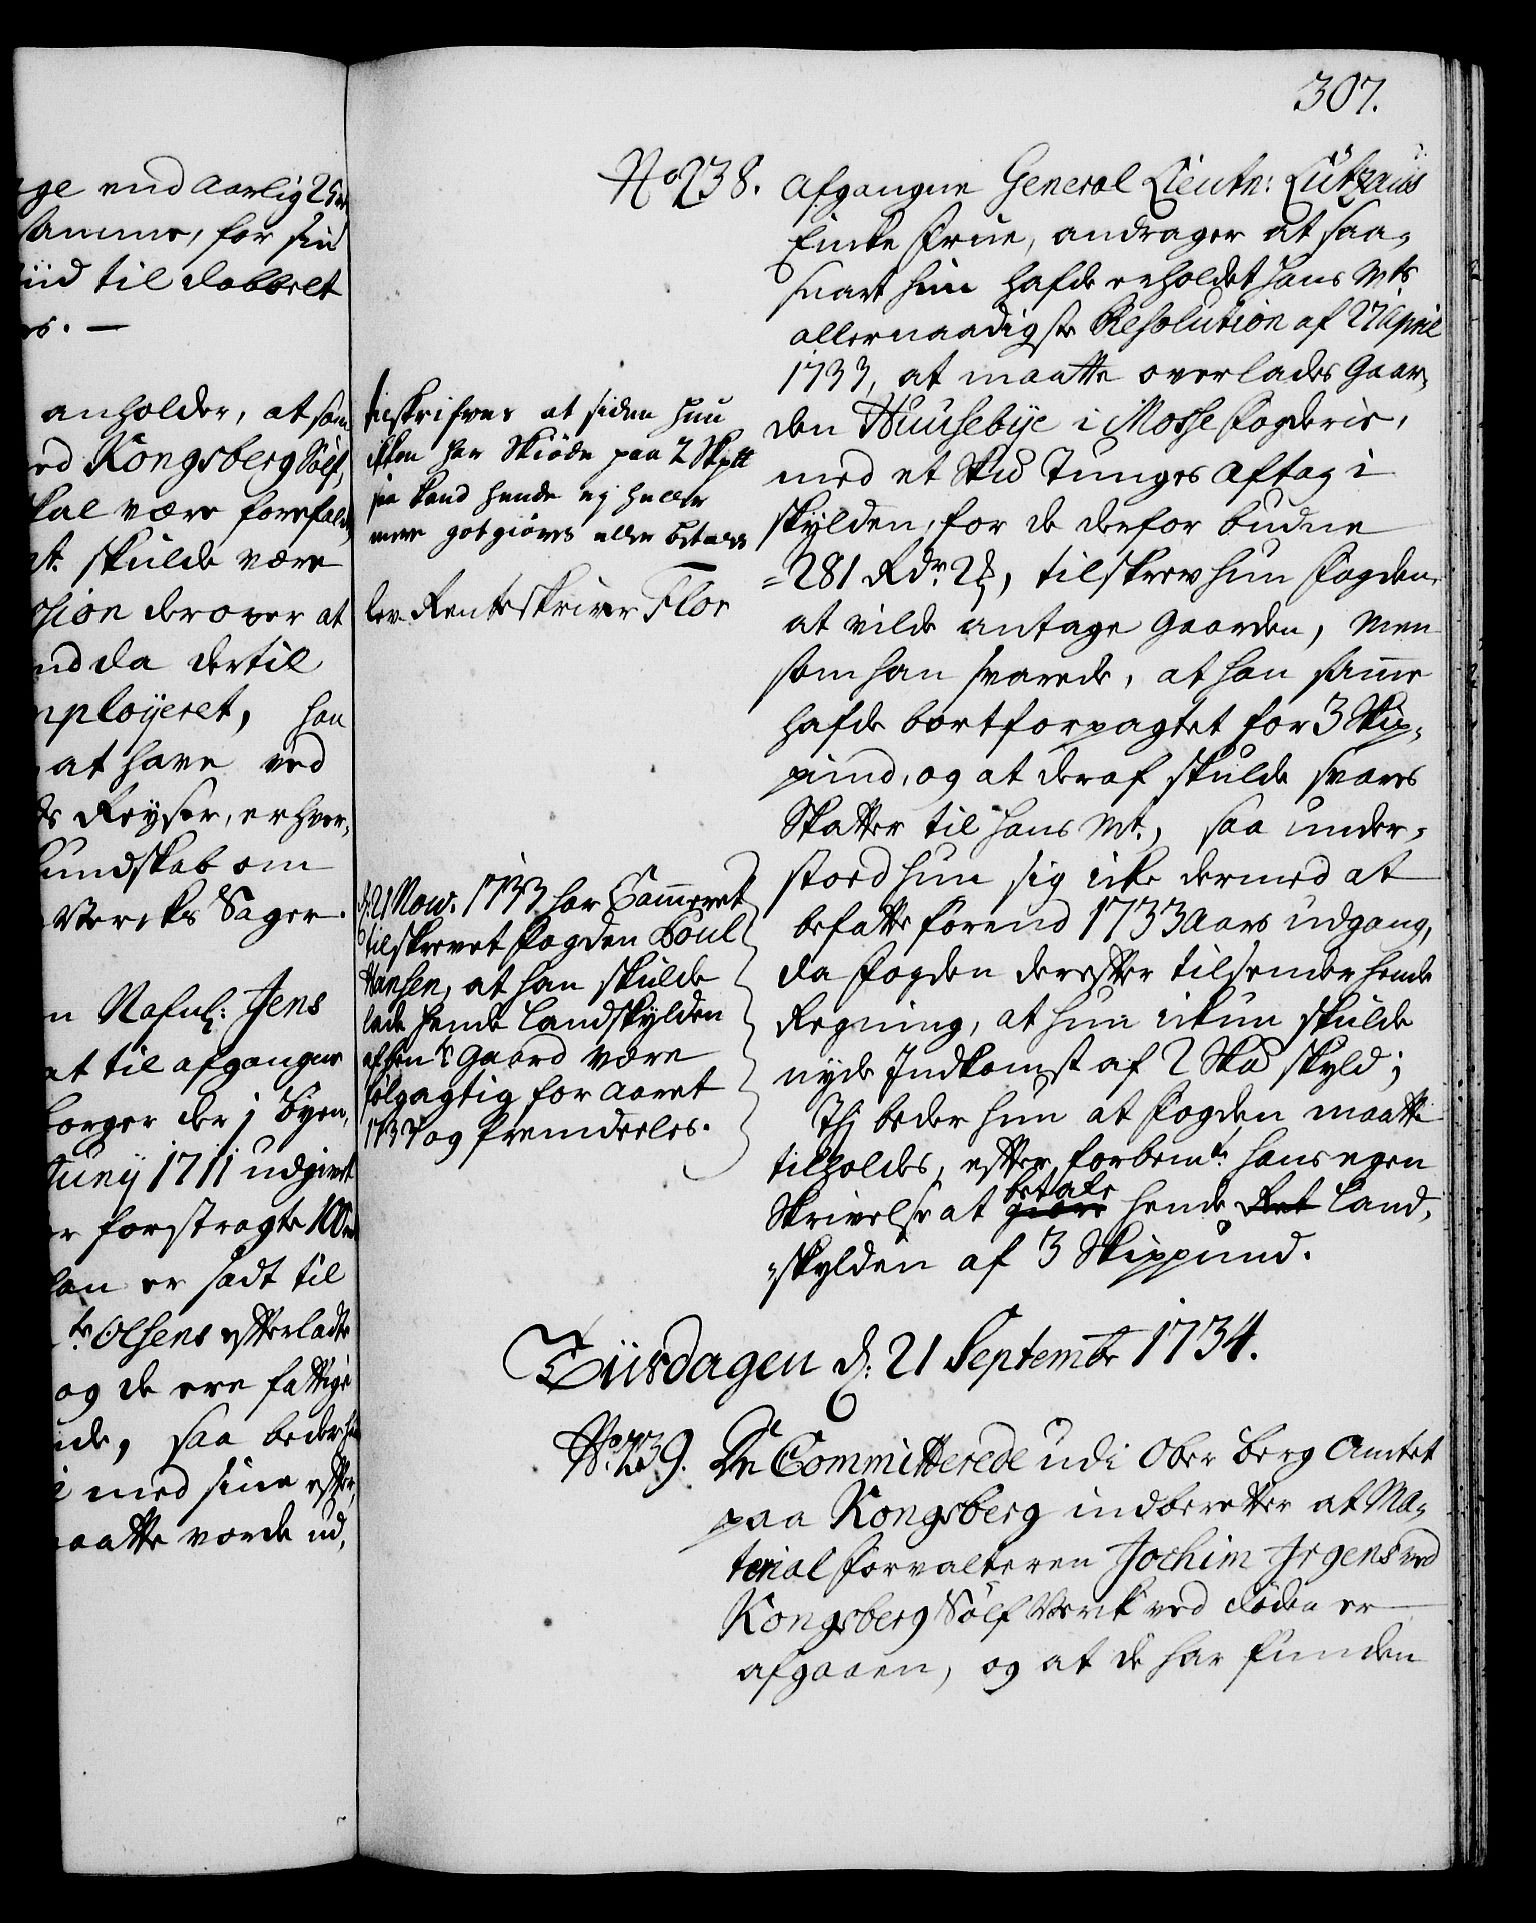 307.
ge end aarlig 25
samme, for sin
tiid til dobbelt
anholder, at som
ved Kongsberg Sølf,
skal være forefald,
skulde være
sion derover at
end da dertil
mployeret, han
at have ved
Reyser, erhver,
kundskab om
Vercks Sager.
n Nafnl: Jens
at til afgangne
borger der i Byen,
Junij 1711 udgivet
er forstragte 100
han er sadt til
Olsens efterladte
og de ere fattige
nde, saa beder hun
med sine efter,
maatte vorde ud,
No 238. Afgangne General Lieutn: Lützaus
Encke Frue, andrager at saa-
snart hun hafde erholdet Hans Mts
allernaadigste Resolution af 27 April
1733, at maatte overlades Gaar,
den Huusebÿe i Mosse Fogderie,
med et Skd Tunges Aftag i
skylden, for de derfor budne
281 Rdr. 2 ß, tilskrev hun Fogden,
at vilde antage Gaarden, Men
som han svarede, at han samme
hafde bortforpagtet for 3 Skip,
pund, og at deraf skulde svares
Skatter til Hans Mt., saa under,
stoed hun sig icke dermed at
befatte forend 1733 Aars udgang,
da Fogden derefter tilsender hende
Regning, at hun ickun skulde
nyde Indkomst af 2 Skd skyld;
Thj beder hun at Fogden maatte
tilholdes, efter forbemte. hans egen
Skrivelse at giøre betale hende Ret Land,
skylden af 3 Skippund.
tilskrifves at siden hun
ikken har Skiøde paa 2 Skpll
saa kand hende ej heller
mere gotgiøres eller betales
lev. Renteskriver Flor
d. 21 Nov. 1733 har Cammeret
tilskrevet Fogden Poul
Hansen, at han skulde
lade hende Landskylden
af bemte Gaard være
følgagtig for Aaret
1733 og fremdeeles.
Tiirsdagen d. 21 Septembr 1734.
No. 239. De Committerede udi Ober Berg Amtet
paa Kongsberg indberetter at Ma,
terial Forvalteren Jochim Irgens ved
Kongsberg Sølf Verk ved døden er
afgaaen, og at de har funden